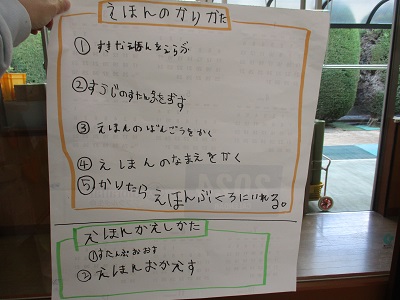 えほんのかりかた
① すきなえほんをえらぶ
②すうじのすたんぷをおす
③ えほんのばんごうをかく
④ えほんのなまえをかく
⑤かりたらえほんぶくろにいれる。
えほんかえしかた
①すたんぷおおす
②えほんおかえす